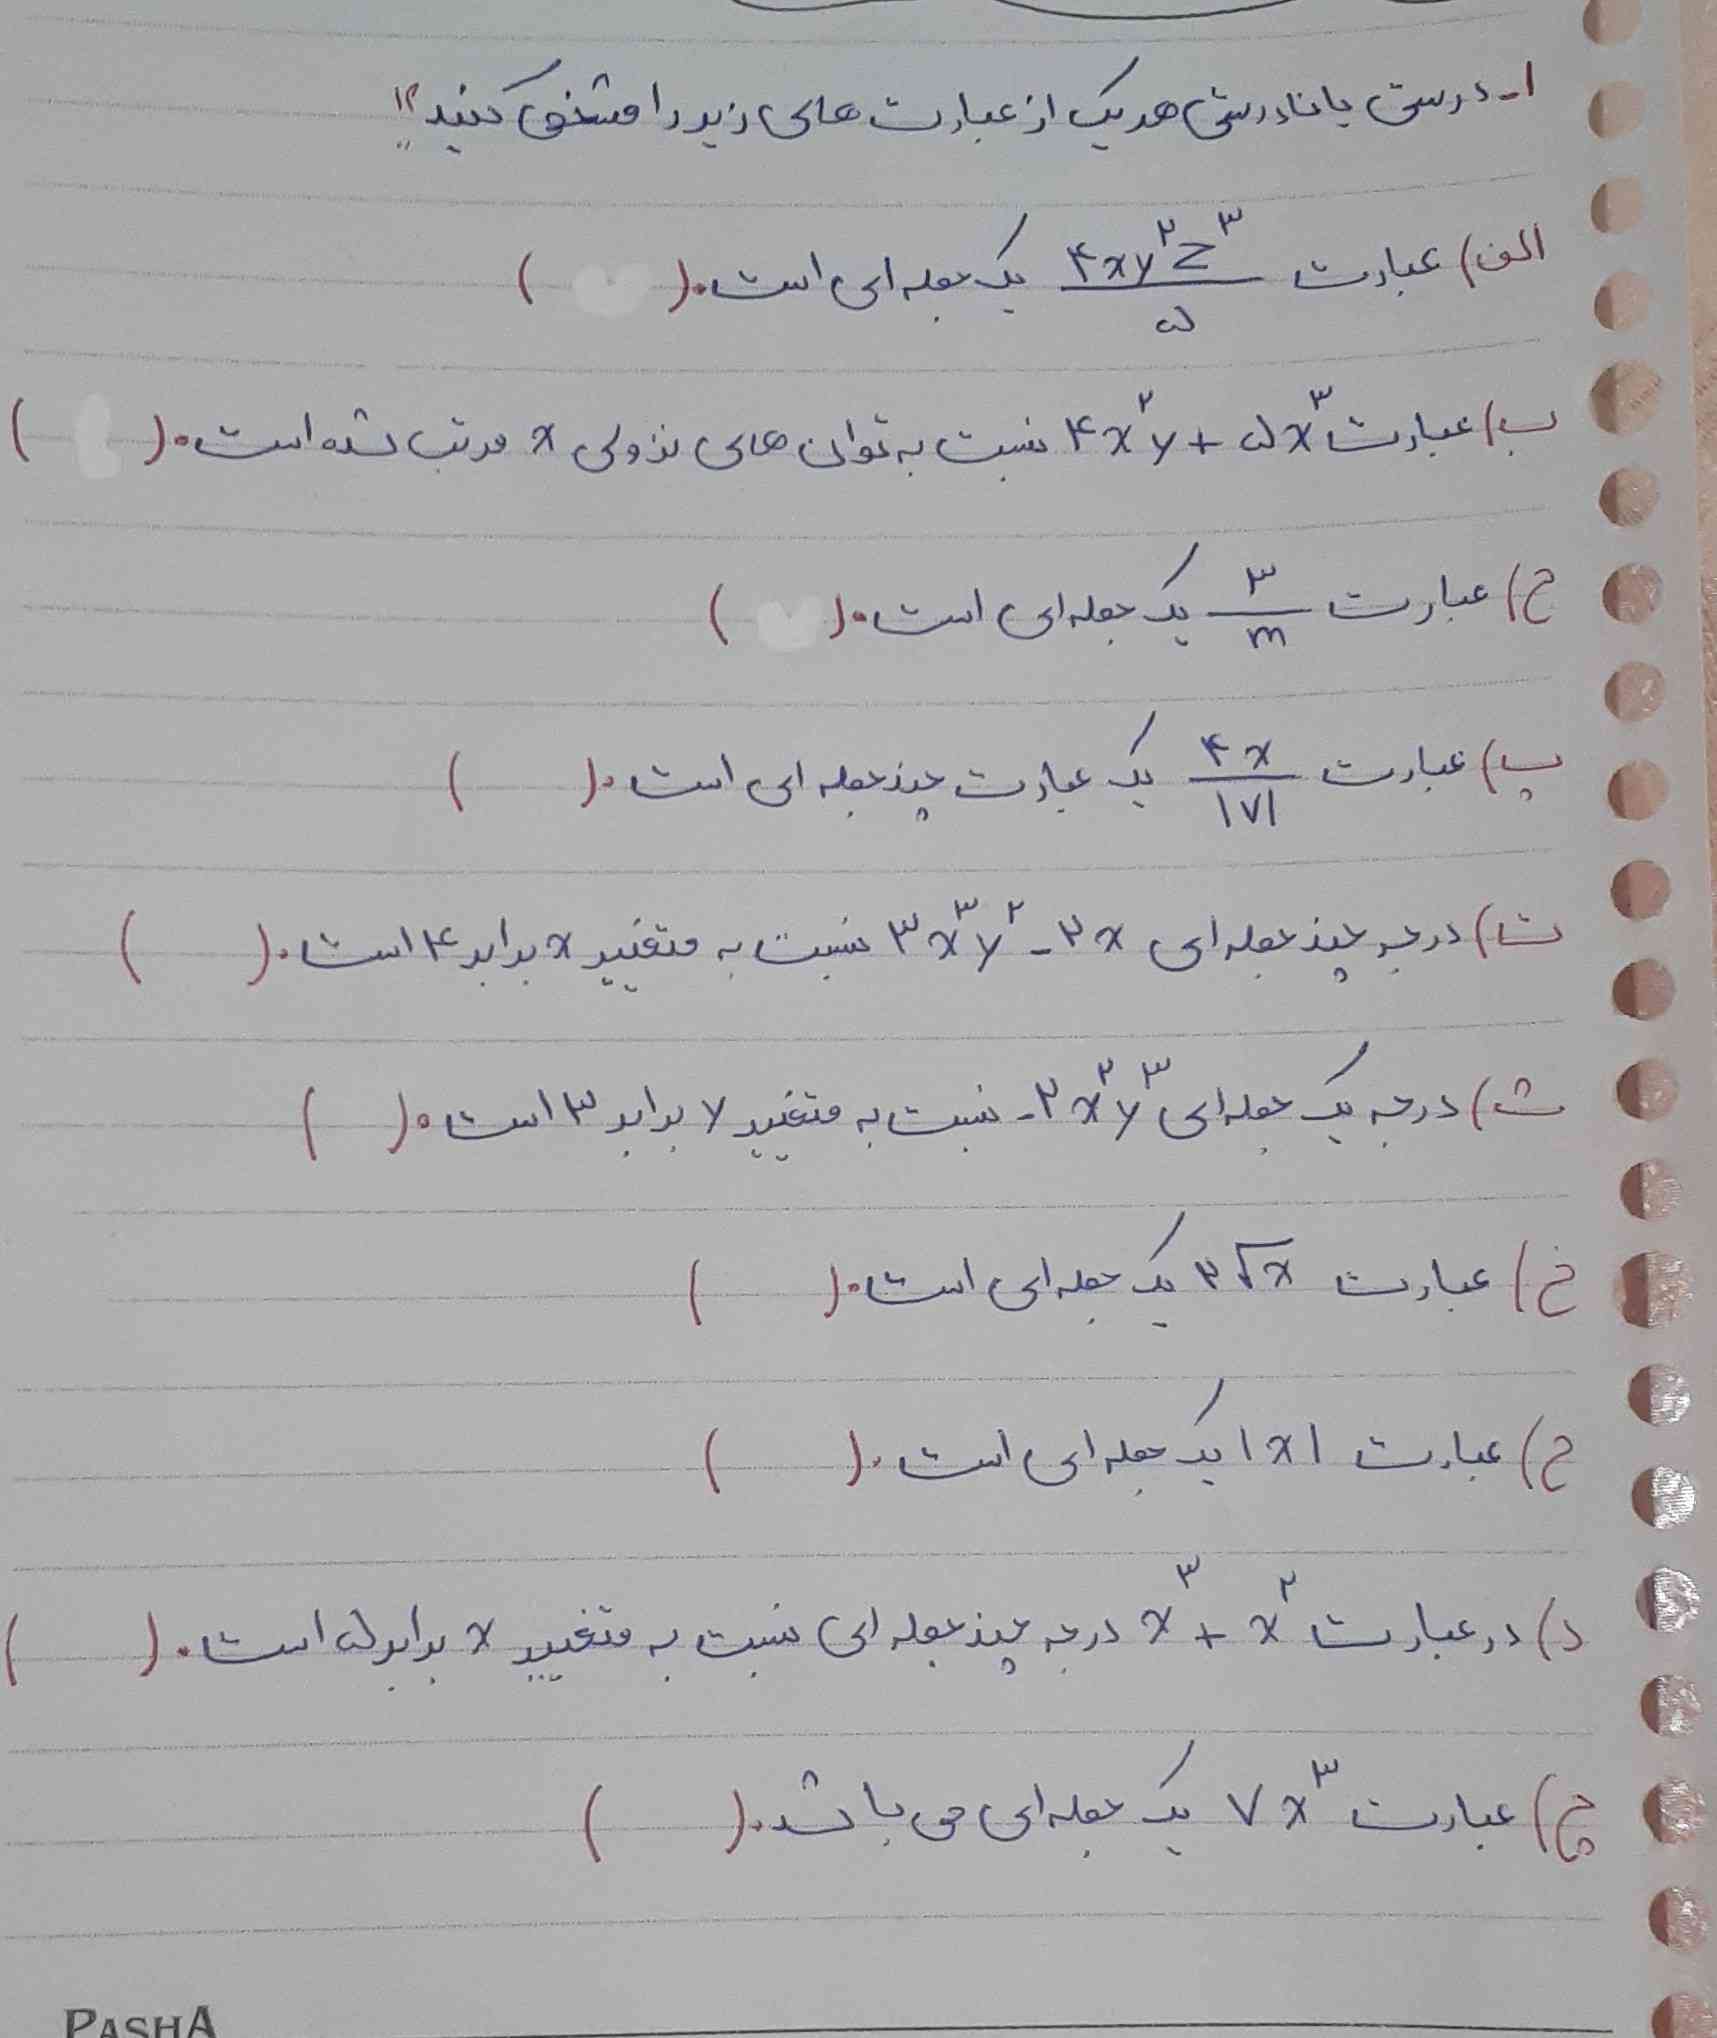 ۱- درستی یا نادرستی هر یک از عبارت های زیر را مشخص کنید؟!
الف) عبارت ۴xy^۲z^۳/۵ یک جمله ای است. (      )
ب) عبارت ۴x^۲y + ۵x^۳ نسبت به توان های نزولی x مرتب شده است. (      )
ج) عبارت ۳/m یک جمله ای است. (      )
پ) عبارت ۴x/|۷| یک عبارت چندجمله ای است. (      )
ت) درجه چندجمله ای ۳x^۳y^۲ - ۲x نسبت به متغییر x برابر ۴ است. (      )
ث) درجه یک جمله ای -۲x^۲y^۳ نسبت به متغییر y برابر ۳ است. (      )
خ) عبارت ۲√x یک جمله ای است. (      )
ح) عبارت |x| یک جمله ای است. (      )
د) در عبارت x^۳ + x^۲ درجه چندجمله ای نسبت به متغییر x برابر ۵ است. (      )
چ) عبارت ۷x^۳ یک جمله ای می باشد. (      )
PASHA